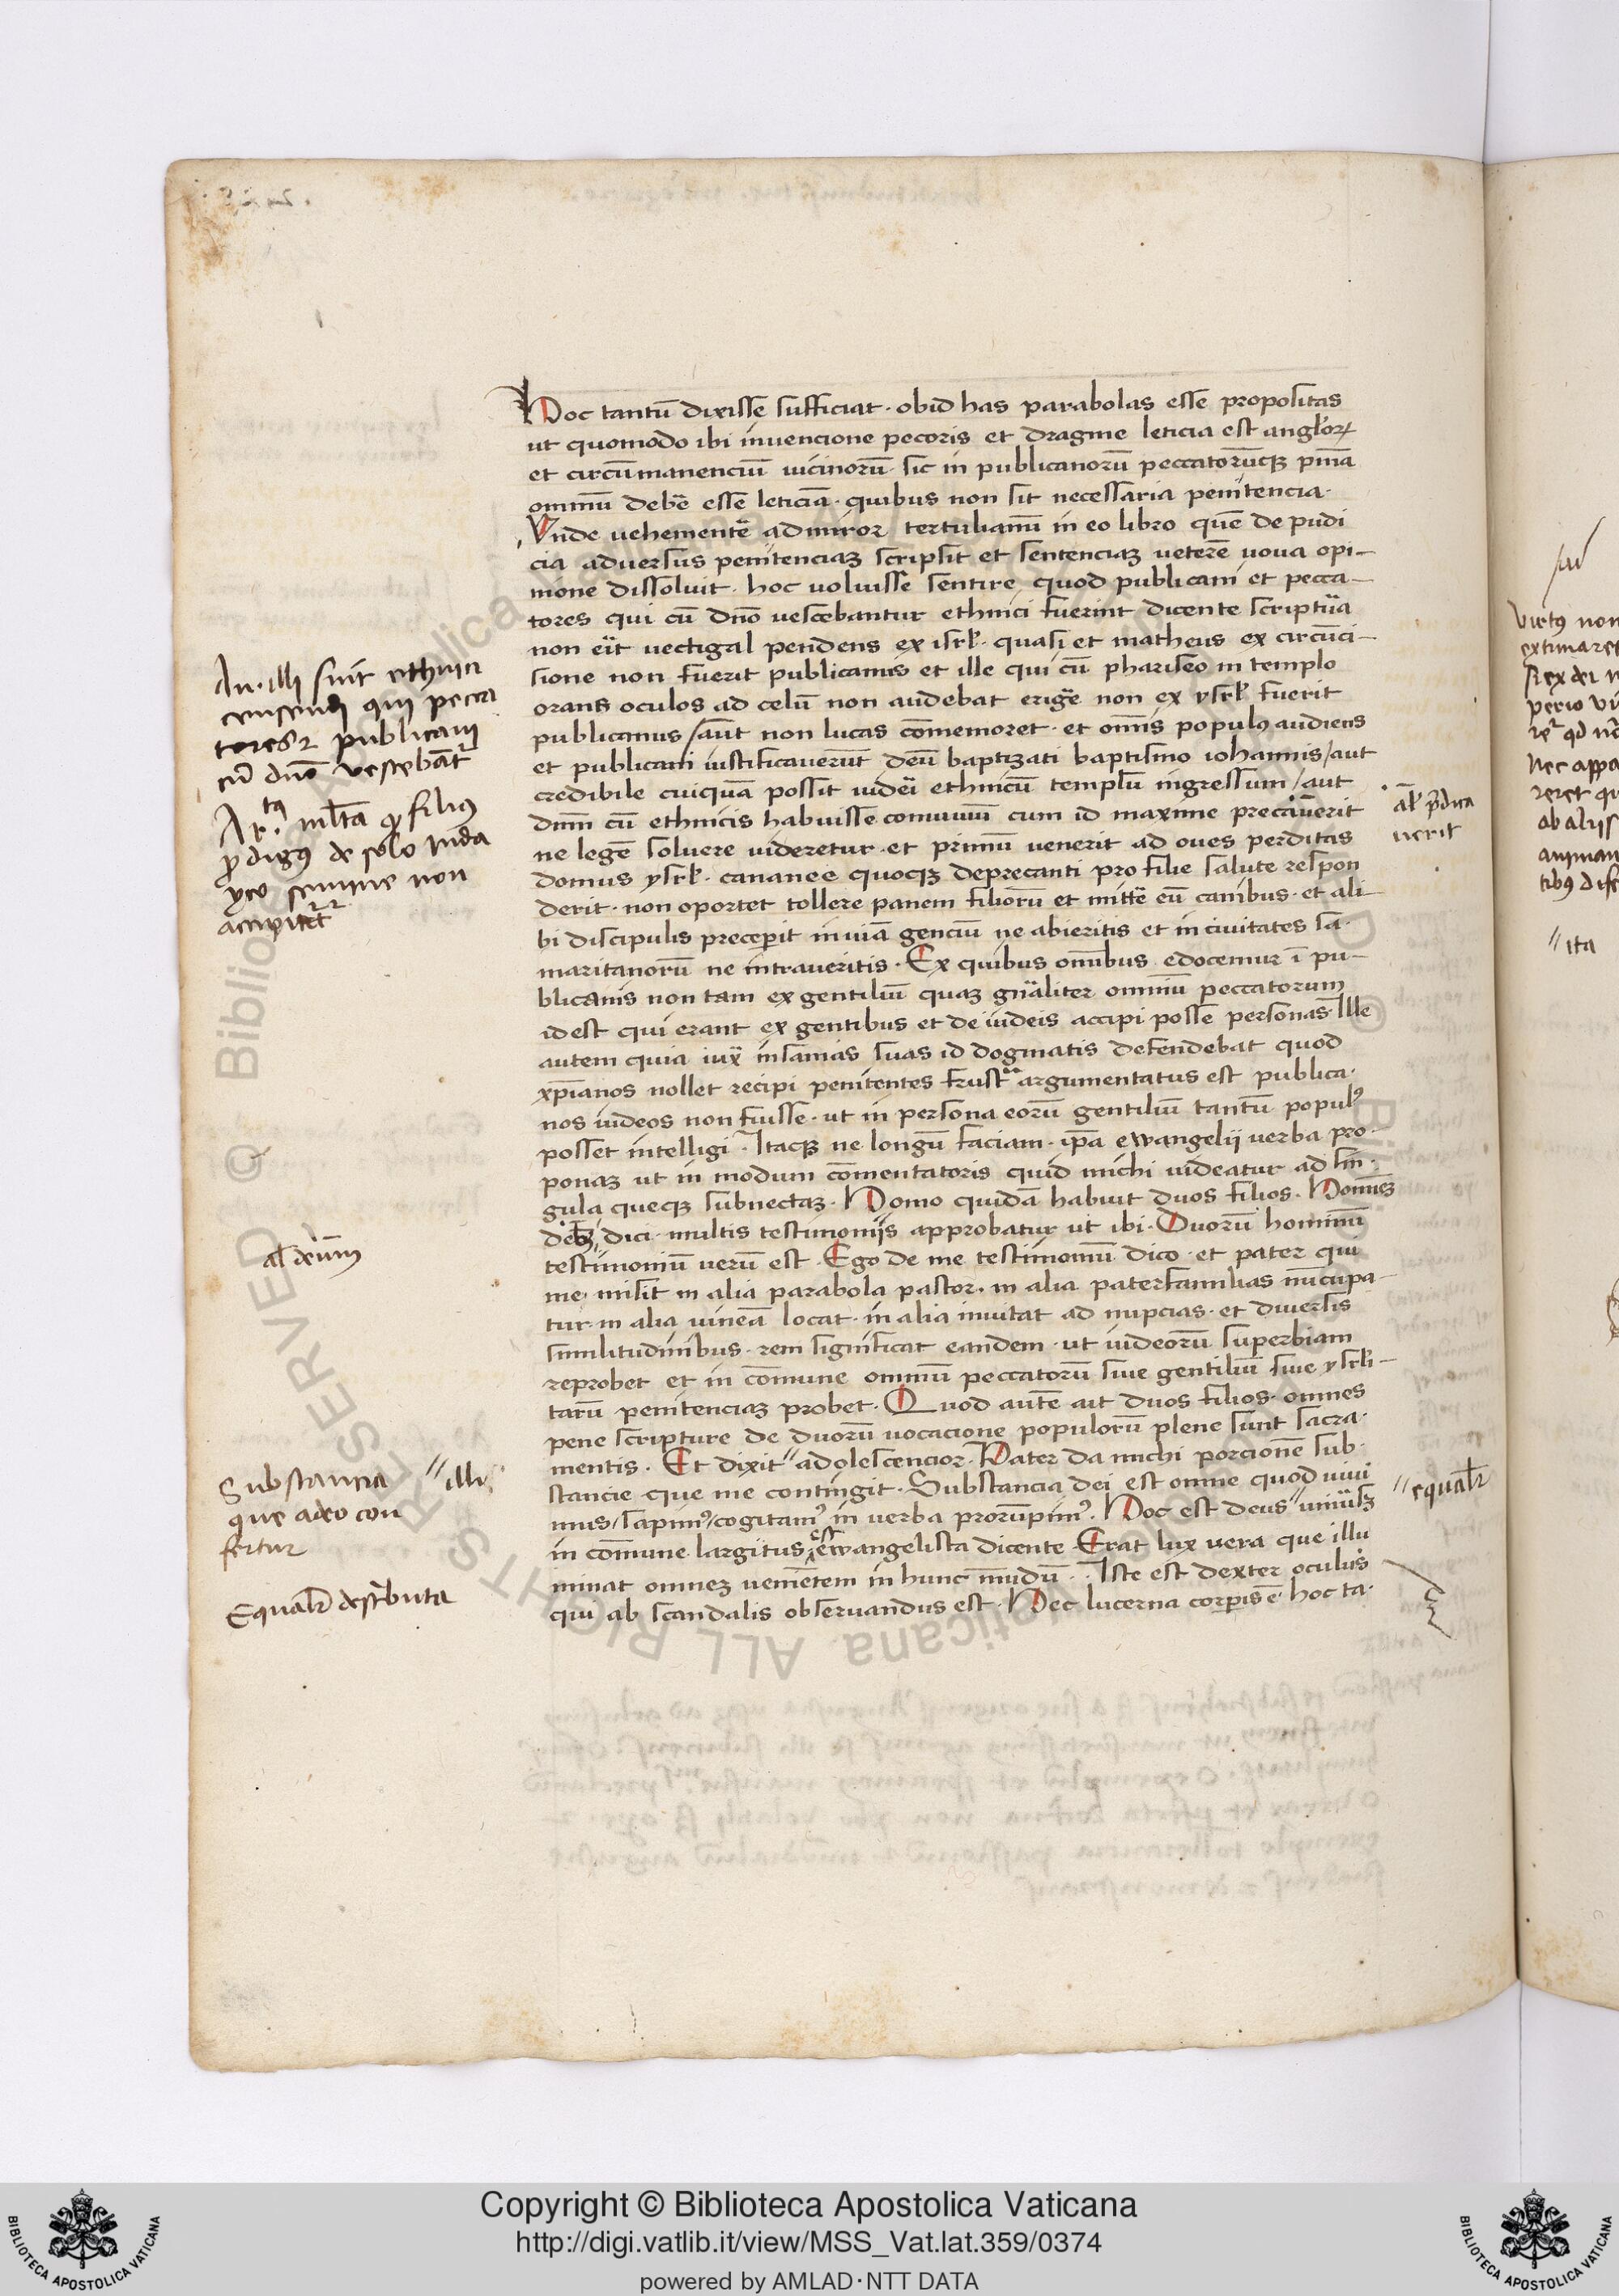 Hoc tantū dixisse sufficiat · obid has parabolas esse propositas
ut quomodo ibi invencione pecoris et dragme leticia est angl̄oꝝ
et circūmanenciū uicinorū · sic in publicanorū peccatorūqꝫ pn̄ia
omniū debē esse leticiā · quibus non sit necessaria penitencia ·
Vnde uehementē admiror tertulianū in eo libro quē de pudi
cia aduersus penitenciaꝫ scripsit et sentenciaꝫ ueterē noua opi-
nione dissoluit · hoc uoluisse sentire quod publicani et pecca-
tores qui cū dn̄o uescebantur ethnici fuerint dicente scriptu̅a
non e̅it uectigal pendens ex isrl̄ · quasi et matheus ex circūci-
sione non fuerit publicanus et ille qui cū phariseo in templo
orans oculos ad celū non audebat erige̅ non ex ysrl̄ fuerit
publicanus / aut non lucas cōmemoret · et omīs populꝰ audiens
et publicani iustificauerūt deū baptizati baptismo iohannis / aut
credibile cuiquā possit uideri ethnicū templū ingressum / aut
dnm̄ cū ethnicis habuisse conuiuiū cum id maxime precauerit
ne legē soluere uideretur · et primū uenerit ad oues perditas
domus ysrl̄ · cananee quoqꝫ deprecanti pro filie salute respon
derit · non oportet tollere panem filiorū et mitte̅ eū canibus · et ali-
bi discipulis preceperit in uiā genciū ne abieritis et in ciuitates sa ·
maritanorū ne intraueritis · Ex quibus omībus edocemur ī pu-
blicanis non tam ex gentiliū quaꝫ gn̄aliter omniū peccatorum
id est qui erant ex gentibus et de iudeis accipi posse personas · Ille
autem quia iux̄ insanias suas id dogmatis defendebat quod
xp̄ianos nollet recipi penitentes frustͣ argumentatus est publica ·
nos iudeos non fuisse · ut in persona eorū gentiliū tantū populꝰ
posset intelligi · Itaqꝫ ne longū faciam · ip̄a ewangelii uerba pro ·
ponaꝫ ut in modum cōmentatoris quid michi uideatur ad sin ·
gula queqꝫ subnectaꝫ · Homo quidā habuit duos filios · Homineꝫ
dici · multis testimoniis approbatur ut ibi · Duorū hominū
testimoniū uerū est · Ego de me testimoniū dico · et pater qui
me misit in alia parabola pastor · in alia paterfamilias nūcupa-
tur in alia uineā locat · in alia inuitat ad nupcias · et diuersis
similitudinibus · rem significat eandem · ut iudeorū superbiam
reprobet et in cōmune omniū peccatorū siue gentiliū siue ysrl̄i-
tarū penitenciaꝫ probet · Quod autē ait duos filios · omnes
pene scripture de duorū uocacione populorū plene sunt sacra ·
mentis · Et dixit " adolescencior · Pater da michi porcionē sub ·
stancie que me contingit · Substancia dei est omne quod uiui
mus / sapimꝰ / cogitamꝰ in uerba prorūpimꝰ · Hoc est deus "
in cōmune largitus est ewangelista dicente · Erat lux uera que illu
minat omneꝫ uenientem in hunc mūdū · Iste est dexter oculus
qui ab scandalis obseruandus est · Hec lucerna corporis ē · hoc ta ·
An · illi sint ethnici
censendi qui pecca
tores ꝛ publicani
cū dn̄o vescebāt͛
filiꝰ
ꝓdigꝰ de solo Iuda
yco semine non
accipitͬ
al̄ p̄dica
uerit
al̄ deum
Substancia " illi
que a deo con
fertur
Equal̄r destributa
" equal̄r
" ita
Copyright © Biblioteca Apostolica Vaticana
http://digi.vatlib.it/view/MSS_Vat.lat.359/0374
powered by AMLAD·NTT DATA
BIBLIOTECA APOSTOLICA VATICANA
BIBLIOTECA APOSTOLICA VATICANA